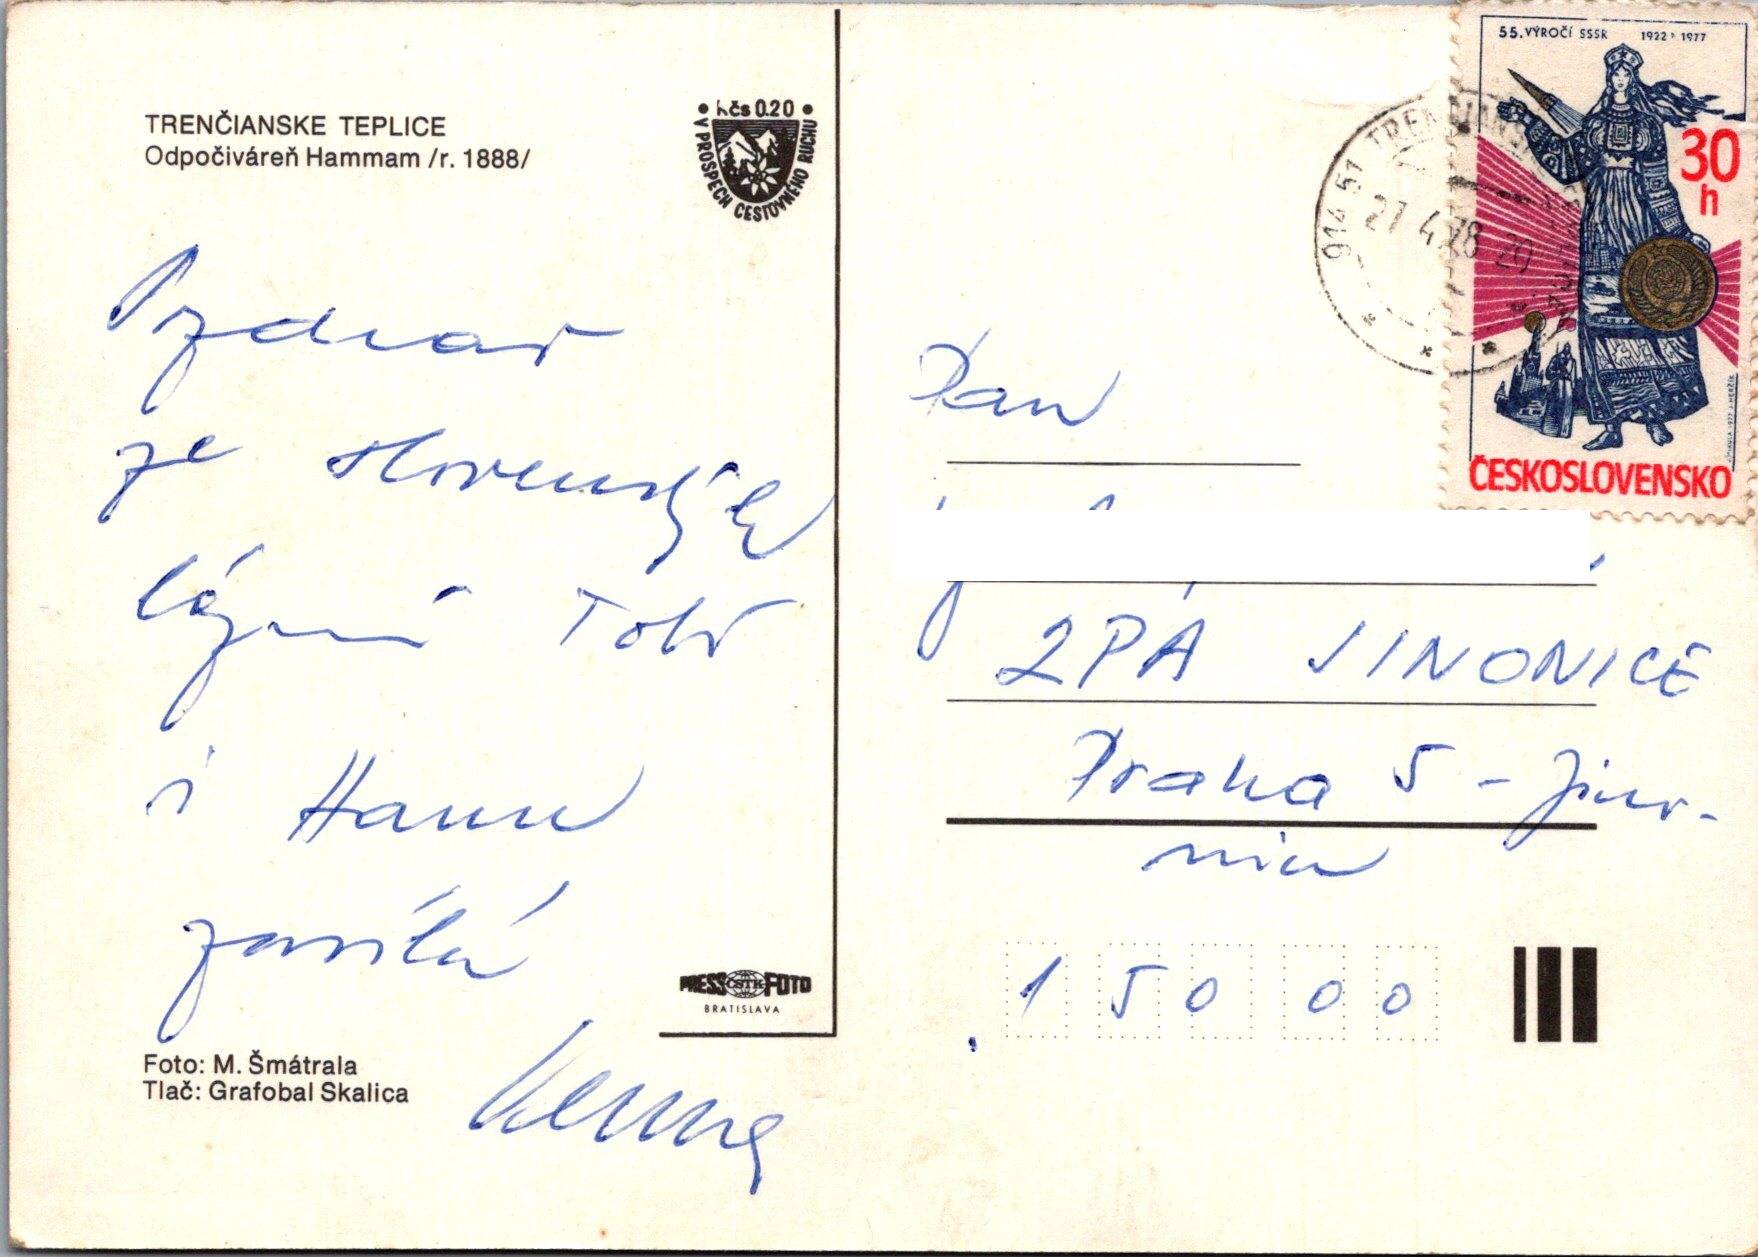 TRENČIANSKE TEPLICE
Odpočiváreň Hammam /r. 1888/
Kčs 0.20
V PROSPECH CESTOVNÉHO RUCHU
Pozdrav
ze slovenských
lázní Tobě
i Hanu
zasílá
PRESS ČSTK FOTO
BRATISLAVA
Foto: M. Šmátrala
Tlač: Grafobal Skalica
55. VÝROČÍ SSSR 1922 1977
30
h
ČESKOSLOVENSKO
914 51 TRENČIANSKE TEPLICE
27.4.78-20
Pan
ZPA JINONICE
Praha 5 - Jino-
nice
150 00